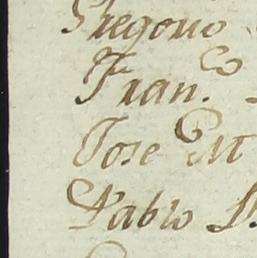 Gregorio
Fran.co
Jose M
Pablo